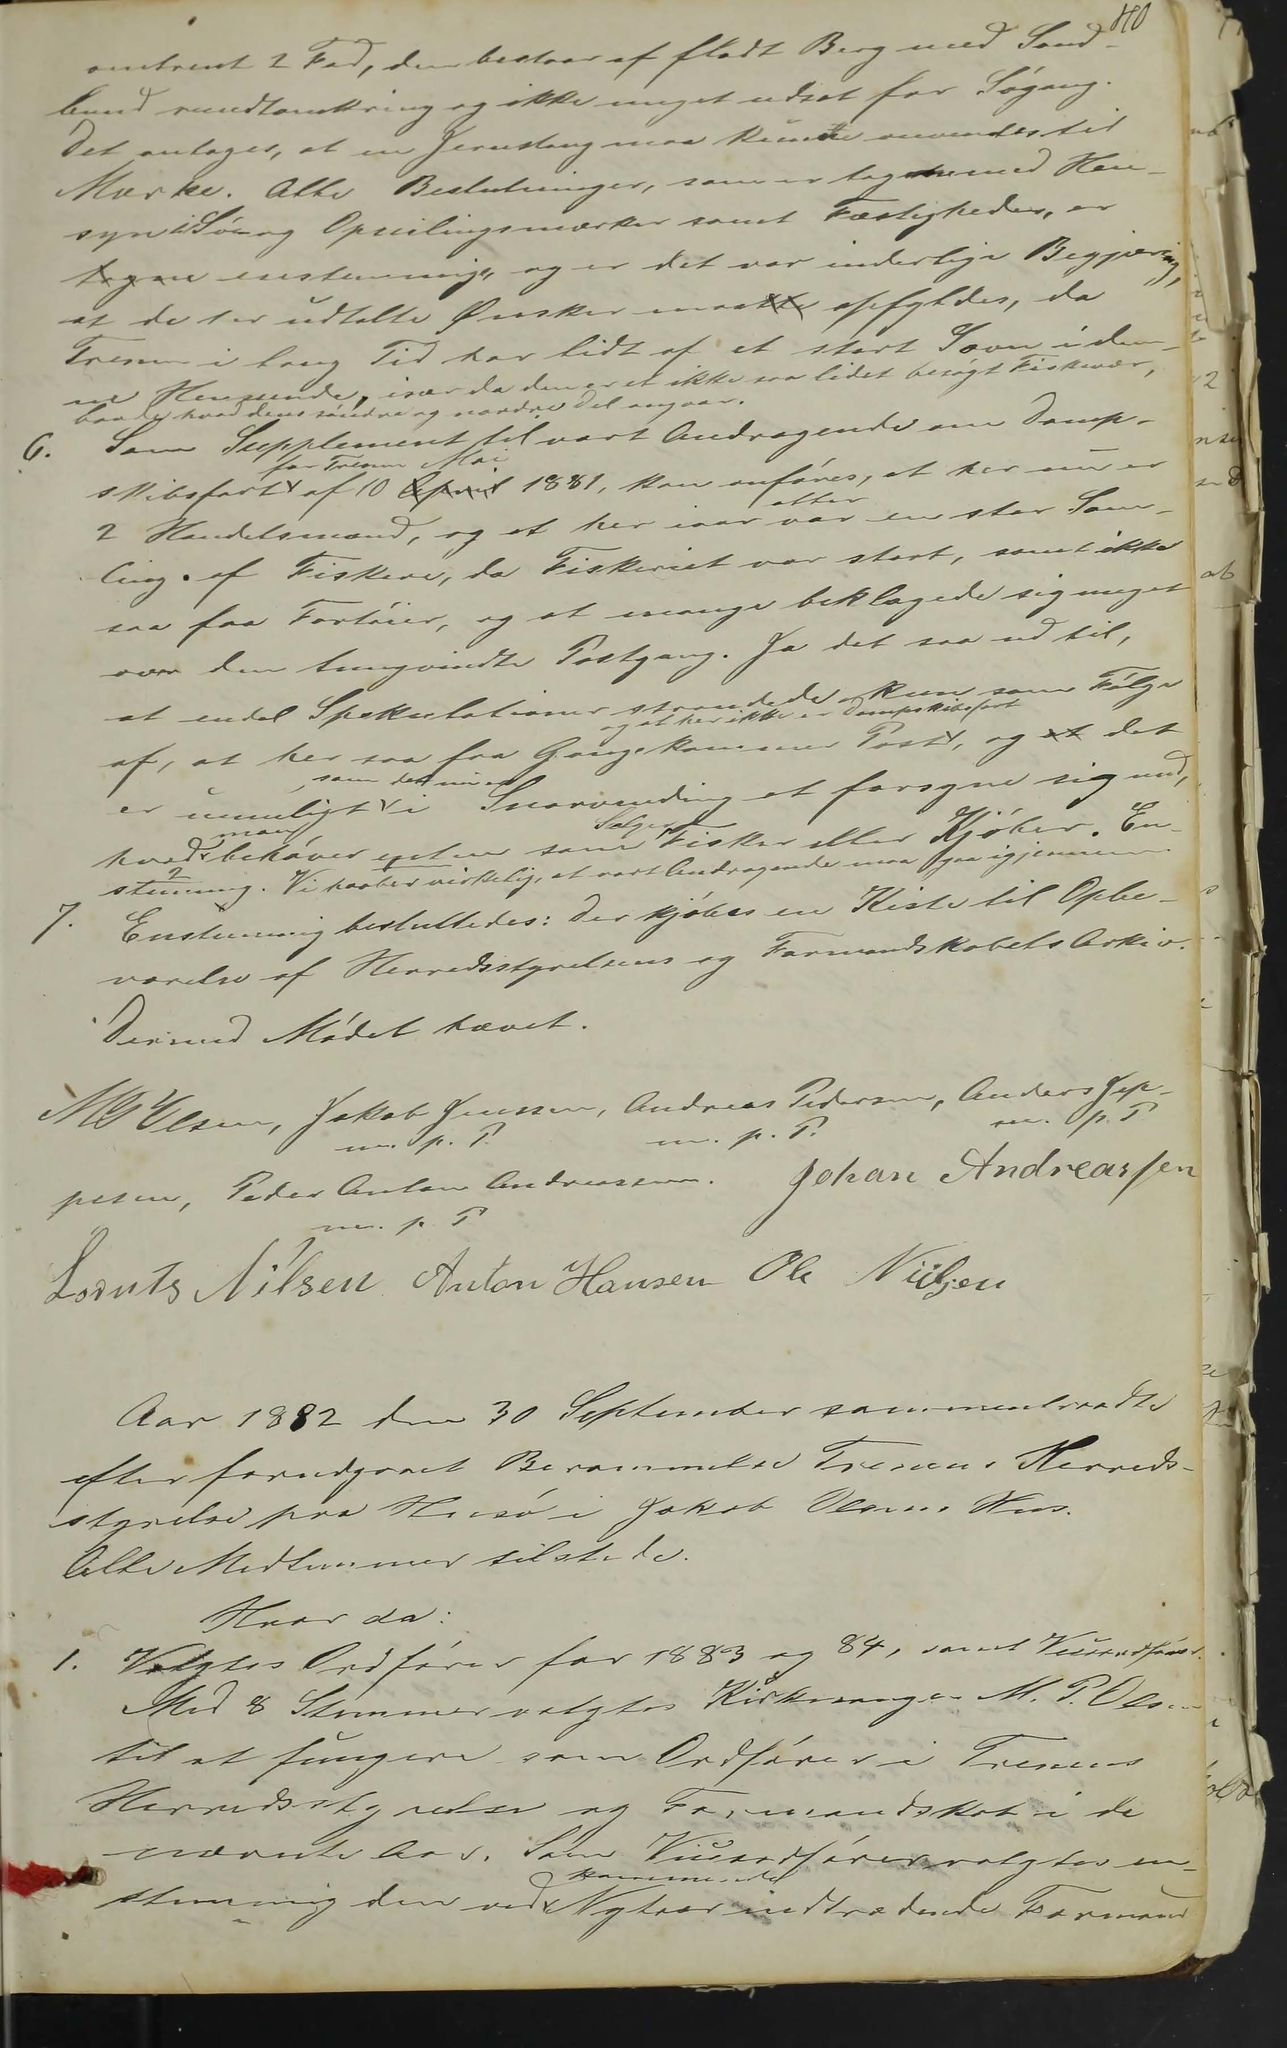 40
omtrent 2 Fad, den bestaar af fladt Berg med Sand-
bund rundtomkring og ikke meget udsat for Søgang.
Det antages, at en Jernstang maa kunde anvendes til
Mærke. Alle Beslutninger, som er tagne med Hen-
syn til Sø- og Opseilingsmærker samt Fæstigheder, er
enstemmige, og er det vor inderlige Begjæring,
at de her udtalte Ønsker maatte opfyldes, da
Trænen i lang Tid har lidt af et stort Savn i den-
ne Henseende, især da den er et ikke saa lidet besøgt Fiskevær,
baade hvad dens søndre og nordre Del angaar.
6. Som Supplement til vort Andragende om Damp-
for Trænen Mai
skibsfart af 10 April 1881, kan anføres, at her nu er
atter
2 Handelsmænd, og at her iaar var en stor Sam-
ling af Fiskere, da Fiskeriet var stort, samt ikke
saa faa Fartøier, og at mange beklagede sig meget
over den tungvindte Postgang. Ja det saa ud til,
at endel Spekulationer strandede kun som Følge
og at her ikke er Dampskibsfart
af, at her saa faa Gange kommer Post, og at det
som det nu er
er umuligt i Snarvending at forsyne sig med,
man Sælger
hvad behøver enten som Fisker eller Kjøber. En-
stemmig. Vi haaber virkelig, at vort Andragende maa gaa igjennem.
7. Enstemmig besluttedes: Der kjøbes en Kiste til Opbe-
varelse af Herredsstyrelsens og Formandskabets Arkiv.
Dermed Mødet hævet.
M P Olsen, Jakob Jenssen, Andreas Pedersen, Anders Jep-
m. p. P. m. p. P. m. p. P
pesen, Peder Anton Andreassen. Johan Andreassen
m. p. P
Lornts Nilsen Anton Hansen Ole Nilsen
Aar 1882 den 30 September sammentraadte
efter forudgaaet Berammelse Trænens Herreds-
styrelse paa Husø i Jakob Olsens Hus.
Alle Medlemmer tilstede.
Hvor da:
1. Valgtes Ordfører for 1883 og 84, samt Viceordfører.
Med 8 Stemmer valgtes Kirkesanger M. P. Olsen
til at fungere som Ordfører i Trænens
Herredsstyrelse og Formandskab i de
nævnte Aar. Som Viceordfører valgtes en-
kommende
stemmig den ved Nytaar indtrædende Formand